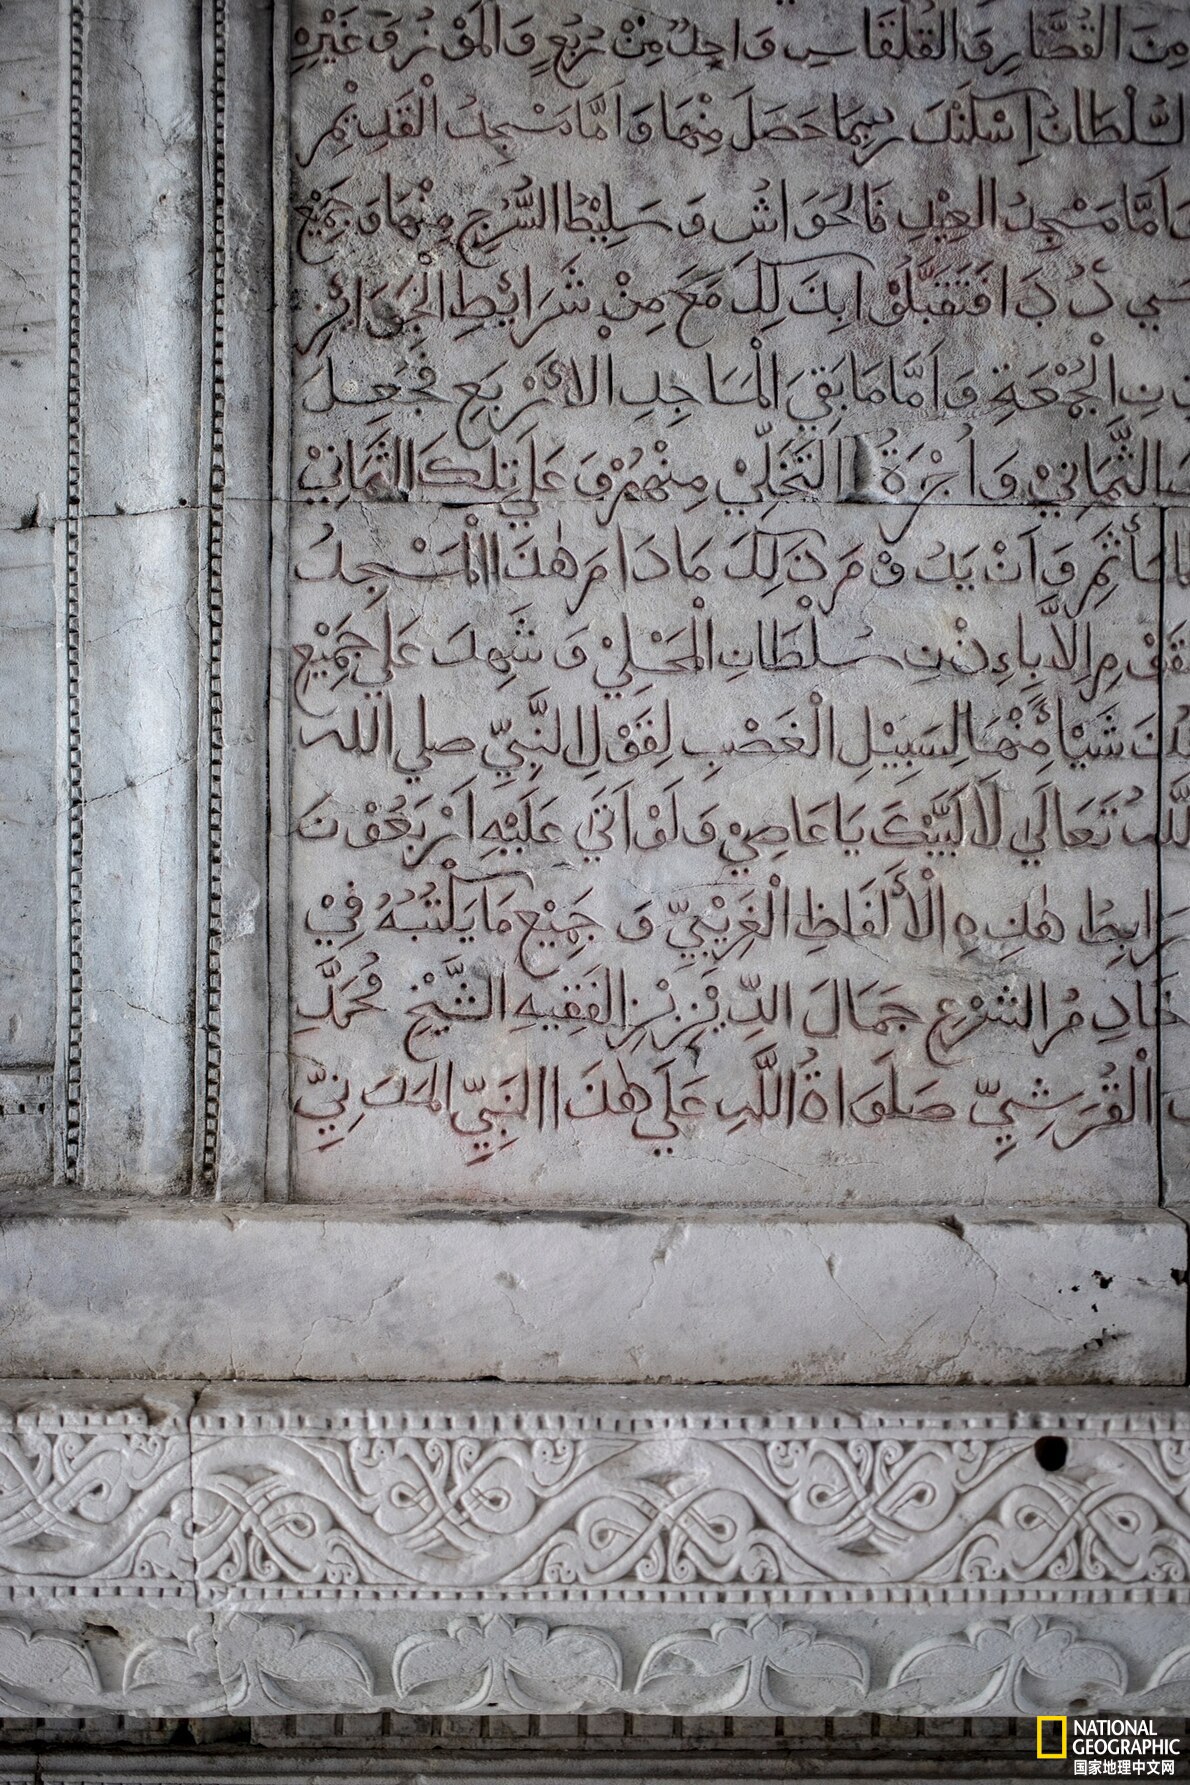 مِنَ القُصَّارِ وَالقُلْقَاسِ وَاحِدٌ مِنْ رُبُعٍ وَالمَوْزُ وَغَيْرِهِ
السُّلْطَانُ إِسْكَنْدَ رِيمَا حَصَلَ مِنْهَا وَاَمَّا مَسْجِدُ الْقَدِيْمِ
وَاَمَّا مَسْجِدُ العِيْدِ فَالحُوَاشُ وَسَلِيْطُ السُّرُجِ مِنْهَا وَجَمِيْعِ
مَعَ مِنْ شَرَائِطِ الجَوَائِزِ
الجُمْعَةِ وَاَمَّا مَا بَقِيَ الْمَسَاجِدِ الاَرْبَعِ فَجَعَلَ
الثَّمَانِيْ وَاُجْرَةُ التَّخَلِّيْ مِنْهُمْ وَعَلَى تِلْكَ الثَّمَانِيْ
وَاَنْ يَدُوْمَ ذَلِكَ مَادَامَ هٰذَا الْمَسْجِدُ
سُلْطَانِ الْمَحَلِيْ وَشَهِدَ عَلَى جَمِيْعِ
شَيْأً مِّنْهَا لِسَبِيْلِ الْغَصْبِ لِقَوْلِ النَّبِيِّ صلي الله
اللَّهُ تَعَالَي لَا لَبَّيْكَ يَا عَاصِيْ وَلَوْ اَتَى عَلَيْهِ اَرْبَعُوْنَ
رَابِطُ هٰذِهِ الْأَلْفَظِ الْغَرِيْبِيِّ وَجَمِيْعِ مَا يَكْتُبُهُ فِيْ
خَادِمُ الشَّرْعِ جَمَالَ الدِّيْنِ الفَقِيهِ الشَّيْخِ مُحَمَّدِ
الْقُرَشِيِّ صَلَوَاةُ اللَّهِ عَلَى هٰذَا النَبِيِّ المَدَنِيِّ
NATIONAL
GEOGRAPHIC
国家地理中文网